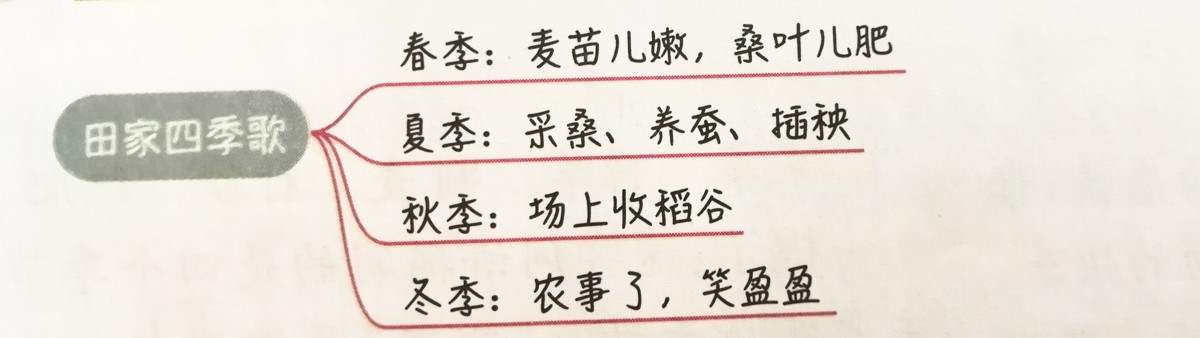 田家四季歌
春季：麦苗儿嫩，桑叶儿肥
夏季：采桑、养蚕、插秧
秋季：场上收稻谷
冬季：农事了，笑盈盈